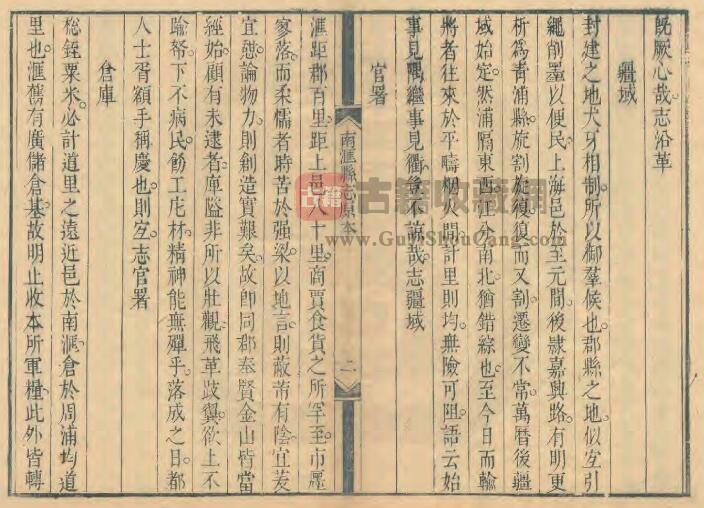 既厥心哉志沿革
疆域
封建之地犬牙相制所以御羣候也郡縣之地似宜引
繩削墨以便民上海邑於至元間後隷嘉興路有明更
析為青浦縣旋割旋復復而又割遷變不常萬曆後疆
域始定然浦隔東西江分南北猶錯綜也至今日而輪
將者往來於平疇烟火間計里則均無險可阻語云始
事見隅繼事見衢
不
哉志疆域
官署
南滙縣志原本
二
滙距郡百里距上邑八十里商賈食貨之所罕至市廛
寥落而柔懦者時苦於强梁以地言則蔽芾有陰宜茇
宜憇論物力則創造實艱矣故即同郡奉賢金山皆當
經始顧有未逮者庳隘非所以壯觀飛革跂翼欲上不
踰帑下不病民飭工庀材精神能無殫乎落成之日都
人士胥額手稱慶也則宜志官署
倉庫
總銍粟米必計道里之遠近邑於南滙倉於周浦均道
里也滙舊有廣儲倉基故明止收本所軍糧此外皆轉
古籍
古籍收藏網
www.GuJiShouCang.com